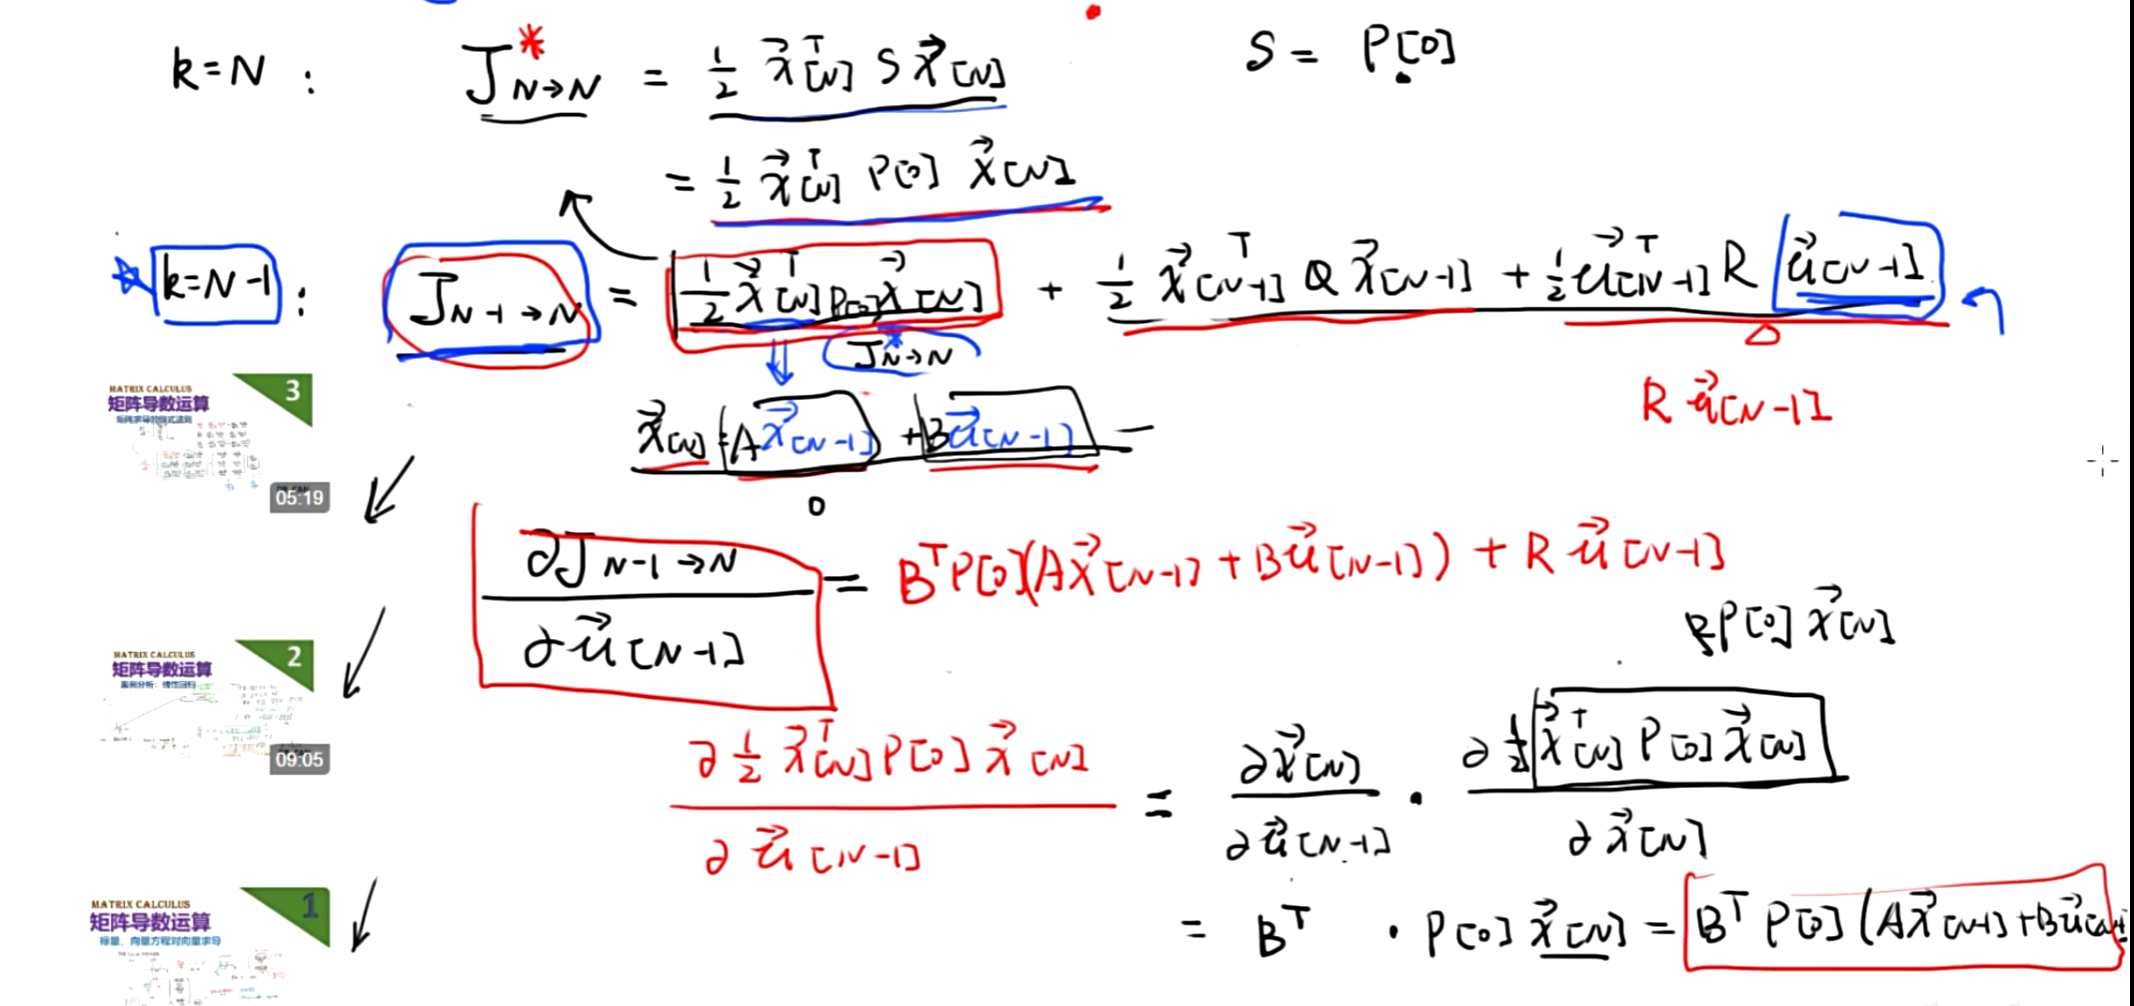 k=N : J*_{N→N} = ½ x⃗ᵀ[N] S x⃗[N] S = P[0]
= ½ x⃗ᵀ[N] P[0] x⃗[N]
k=N-1 : J_{N-1→N} = ½ x⃗ᵀ[N] P[0] x⃗[N] + ½ x⃗ᵀ[N-1] Q x⃗[N-1] + ½ u⃗ᵀ[N-1] R u⃗[N-1]
J*_{N→N}
R u⃗[N-1]
x⃗[N] = A x⃗[N-1] + B u⃗[N-1]
0
MATRIX CALCULUS
矩阵导数运算
矩阵求导的链式法则
3
05:19
∂J_{N-1→N} / ∂u⃗[N-1] = Bᵀ P[0] (A x⃗[N-1] + B u⃗[N-1]) + R u⃗[N-1]
P[0] x⃗[N]
MATRIX CALCULUS
矩阵导数运算
案例分析：线性回归
2
09:05
∂ ½ x⃗ᵀ[N] P[0] x⃗[N] / ∂u⃗[N-1] = ∂x⃗[N] / ∂u⃗[N-1] · ∂ ½ x⃗ᵀ[N] P[0] x⃗[N] / ∂x⃗[N]
MATRIX CALCULUS
矩阵导数运算
标量、向量方程对向量求导
1
= Bᵀ · P[0] x⃗[N] = Bᵀ P[0] (A x⃗[N-1] + B u⃗[